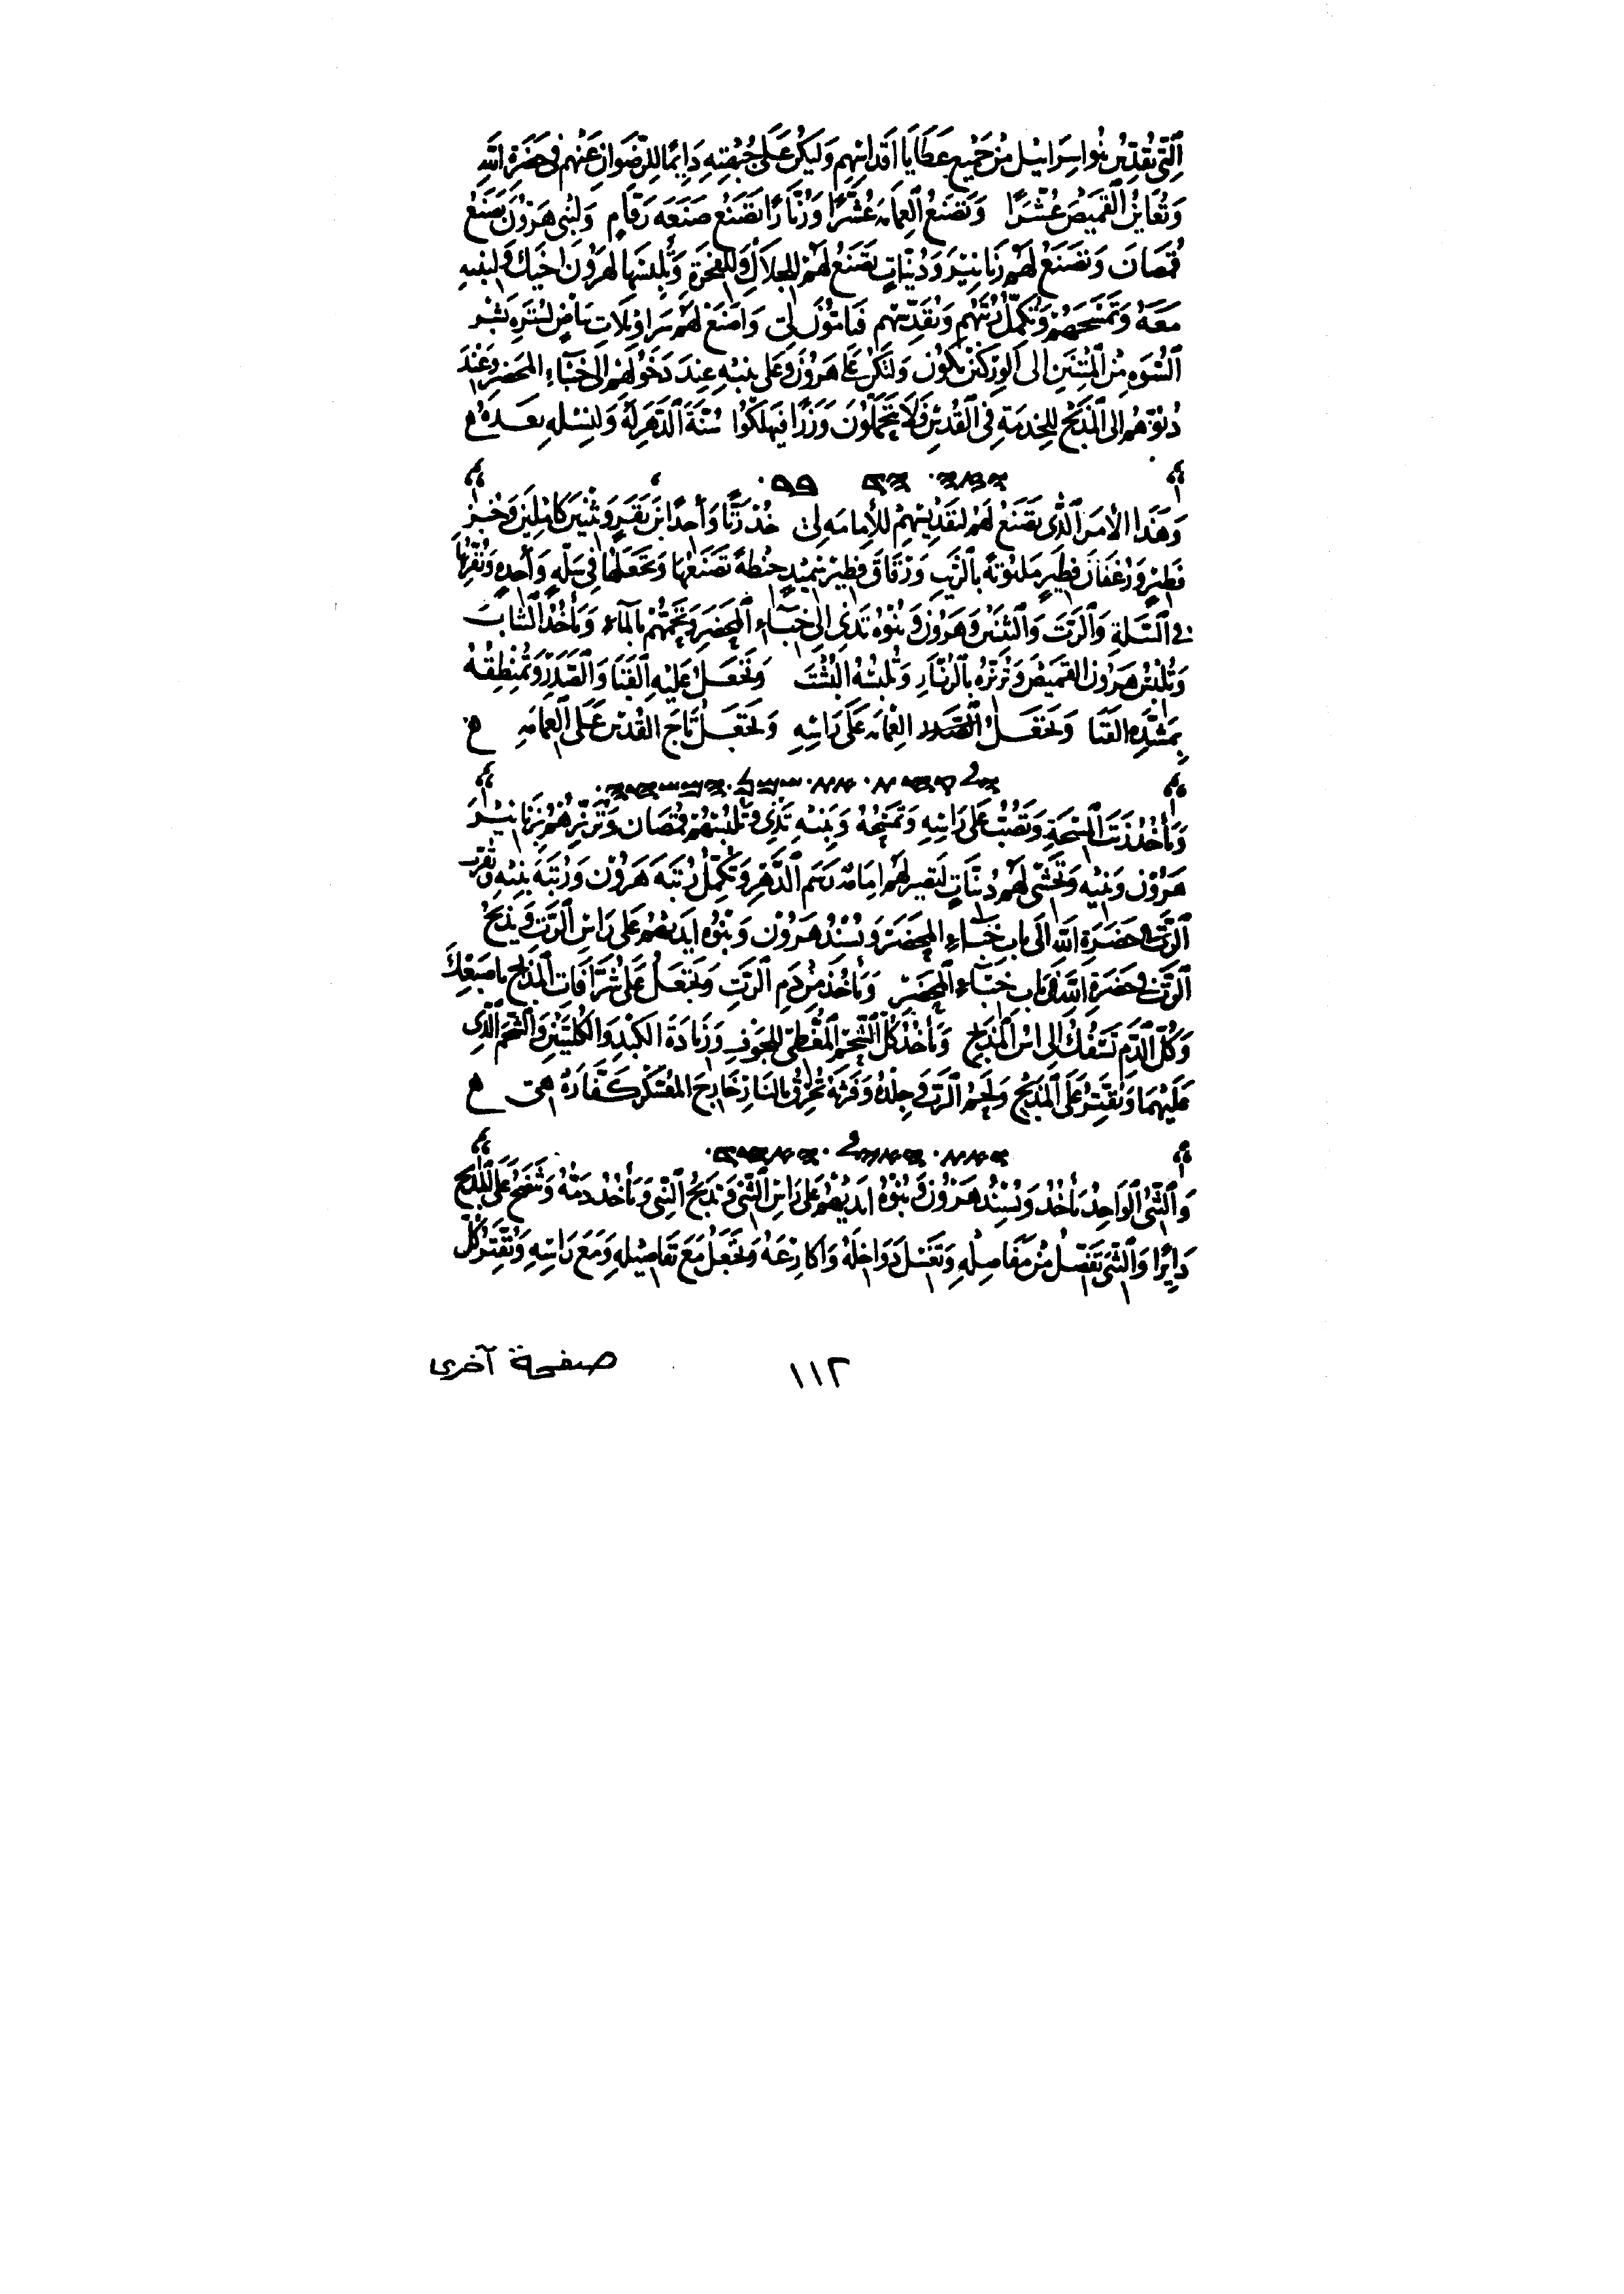 الَّتِي تُقَدِّس بَنُوا سِرَايِيل مِن جَمِيع عَطَايَا اَقدَاسِهِم وَلِيَكُن عَلَى جُبهَتِهِ دَايِمًا لِلرِضوَان عَنهُم فِي حَضرَةِ اللهِ
وَتُعَايِنُ القَمِيصَ عُشَّرًا وَتَصنَعُ العِمَامَة عُشَّرًا وَزُنَّارًا تَصنَعُ صَنعَة رَقَّامٍ وَلِبَنِي هَرُونَ تَصنَعُ
قُمصَان وَتَصنَعُ لَهُم زَنَانِير وَدُنِّيَّاتٍ تَصنَعُ لَهُم لِلجَلَالِ وَلِلفَخرَةِ وَتُلبِسهَا لِهَرُونَ اخِيك وَلِبَنِيهِ
مَعَهُ وَتَمسَحَهُم وَتُكَمِّلُ رُتبَتَهُم وَتُقَدِّسهُم فَيَامُّونَ لِي وَاصنَع لَهُم سَرَاوِيلَات بَيَاضٍ لِسُترَةِ بَشَر
السُّوءِ مِن المَتنَين الى الوِركَين تَكُون وَلتَكُن عَلَى هَرُون وَعَلَى بَنِيهِ عِندَ دَخُولِهُم الى خَبَاءِ المَحضَر وَعِندَ
دُنُوِّهُم الى المَذبَح لِلخِدمَةِ فِي القُدسِ وَلَا يَتَحَمَّلُونَ وَزرًا فَيَهلَكُوا سُنَّةَ الدَّهرِ لَهُ وَلِنَسلِهِ بَعدَهُ
وَهَذَا الأمر الَّذِي تَصنَعُ لَهُم لِتَقدِيسِهِم لِلأمَامَةِ لِي خُذ رَتًّا وَأحِدًا ابن بَقَرٍ وَثَنيَين كَامِلَين وَخُبز
فَطِيرٍ وَرُغفَان فَطِيرٍ مَلتُوتَةً بِالزَّيتِ وَرِقَاق فَطِير سَمِيدٍ حِنطَة تَصنَعهَا وَتَجعَلهَا فِي سَلَّةٍ وَأحِدَةٍ وَتُقَرِّبهَا
في السَّلَةِ وَالرَّتَ وَالثَّنيَين وَهَرُون وَبَنُوهُ تُدنِي الى خَبَاءِ المَحضَر وَتَحُمَّهُم بِالمَاءِ وَتَأخُذ الثِّيَابَ
وَتُلبِسُ هَرُون القَمِيصَ وَتُزَنِّرُه بِالزُنَّارِ وَتُلبِسُهُ البُشتَ وَتَجعَلُ عَلَيهِ القَبَا وَالصَّدرَ وَتُمَنطِقُهُ
بِمَشَدِّهِ القَبَا وَتَجعَلُ العِمَامَة عَلَى رَاسِهِ وَتَجعَلُ تَاجَ القُدسِ عَلَى العِمَامَةِ
وَتَأخُذُ زَيتَ المَسحَةِ وَتَصُبُّ عَلَى رَاسِهِ وَتَمسَحُهُ وَبَنِيهِ تُدنِي وَتُلبِسُهُم قُمصَان وَتُزَنِّرُهُم بِزَنَانِيرَ
هَرُون وَبَنِيهِ وَتَحشِي لَهُم دُنِّيَّاتٍ لِتَصِير لَهُم امَامَة رَسم الدَّهرِ وَتُكَمِّلُ رُتبَة هَرُون وَرُتبَةَ بَنِيهِ وَتُقَرِّب
الرَّتَّ فِي حَضرَةِ اللهِ الَى باب خَبَاءِ المَحضَر وَيُسنِدُ هَرُون وَبَنُوهُ ايدِيَهُم عَلَى رَاسِ الرَّتِّ وَيذبَحُ
الرَّتَّ فِي حَضرَةِ اللهِ فِي بَابِ خَبَاءِ المَحضَر وَتَأخُذ مِن دَمِ الرَّتِ وَتَجعَلُ عَلَى شُرَّافَات المَذبَح باصبَعِكَ
وَكُلَّ الدَّمِ تَسفُك الى اسّ المَذبَح وَتَأخُذ كُلَّ الشَّحمِ المُغَطِّي لِلجَوفِ وَزِيَادَةَ الكَبِدِ وَالكُليَتَينِ وَالشَّحمَ الَّذِي
عَلَيهِمَا وَتُقَتِّرُ عَلَى المَذبَح وَلَحمُ الرَّتّ وَجِلدُهُ وَفَرثَهُ تُحرِقُ بِالنَّارِ خَارِجَ المُعَسكَر كَفَّارَةً هِي
وَالثَّنِيُّ الوَاحِدُ تَأخُذ وَيُسنِدُ هَرُون وَبَنُوهُ ايدِيَهُم عَلَى رَاسِ الثَّنِي وَتَذبَحُ الثَّنِي وَتَأخُذ دَمَهُ وَتَنضَحُ عَلَى المَذبَح
دَايِرًا وَالثَّنِيَ تُفَصِّلُ مِن مَفَاصِلِهِ وَتَغسَل دَوَاخِلَهُ وَاكَارِعَهُ وَتَجعَلُ مَعَ تَفَاصِيلِهِ وَمَعَ رَاسِهِ وَتُقَتِّرُ كُلَّ
١١٢ صفحة آخرى